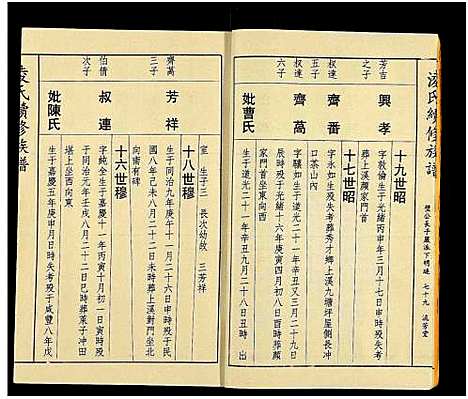 凌氏續修族譜
璧公長子嚴派下明璉 七十九 流芳堂
十九世昭
芳吉之子
興孝
字敦倫生于光緒丙申年三月十七日申時歿失考
葬上溪顏家門首
十七世昭
权達五子
齊番
字永如生歿失考葬秀才鄉上溪九塘坪屋側長冲
口茶山內
权達六子
齊萵
字驥如生于道光二十一年辛丑又三月二十九日
辰時歿于光緒十六年庚寅四月初八日酉時葬顏
家門首坐東向西
妣曹氏
生于道光二十一年辛丑九月二十八日丑時 出
室 生子三 長次幼故 三芳祥
十八世穆
齊萵三子
芳祥
生于同治九年庚午十一月二十六日申時歿于民
國八年己未八月二十二日未時葬上溪對門坐北
向南有碑
十六世穆
伯倩次子
叔連
字純金生于嘉慶十一年丙寅十一月初一日寅時
歿于同治元年壬戌八月二十二日巳時葬菜子冲田
堪上坐西向東
妣陳氏
生于嘉慶五年庚申月日時失考歿于咸豐八年戊
凌氏續修族譜